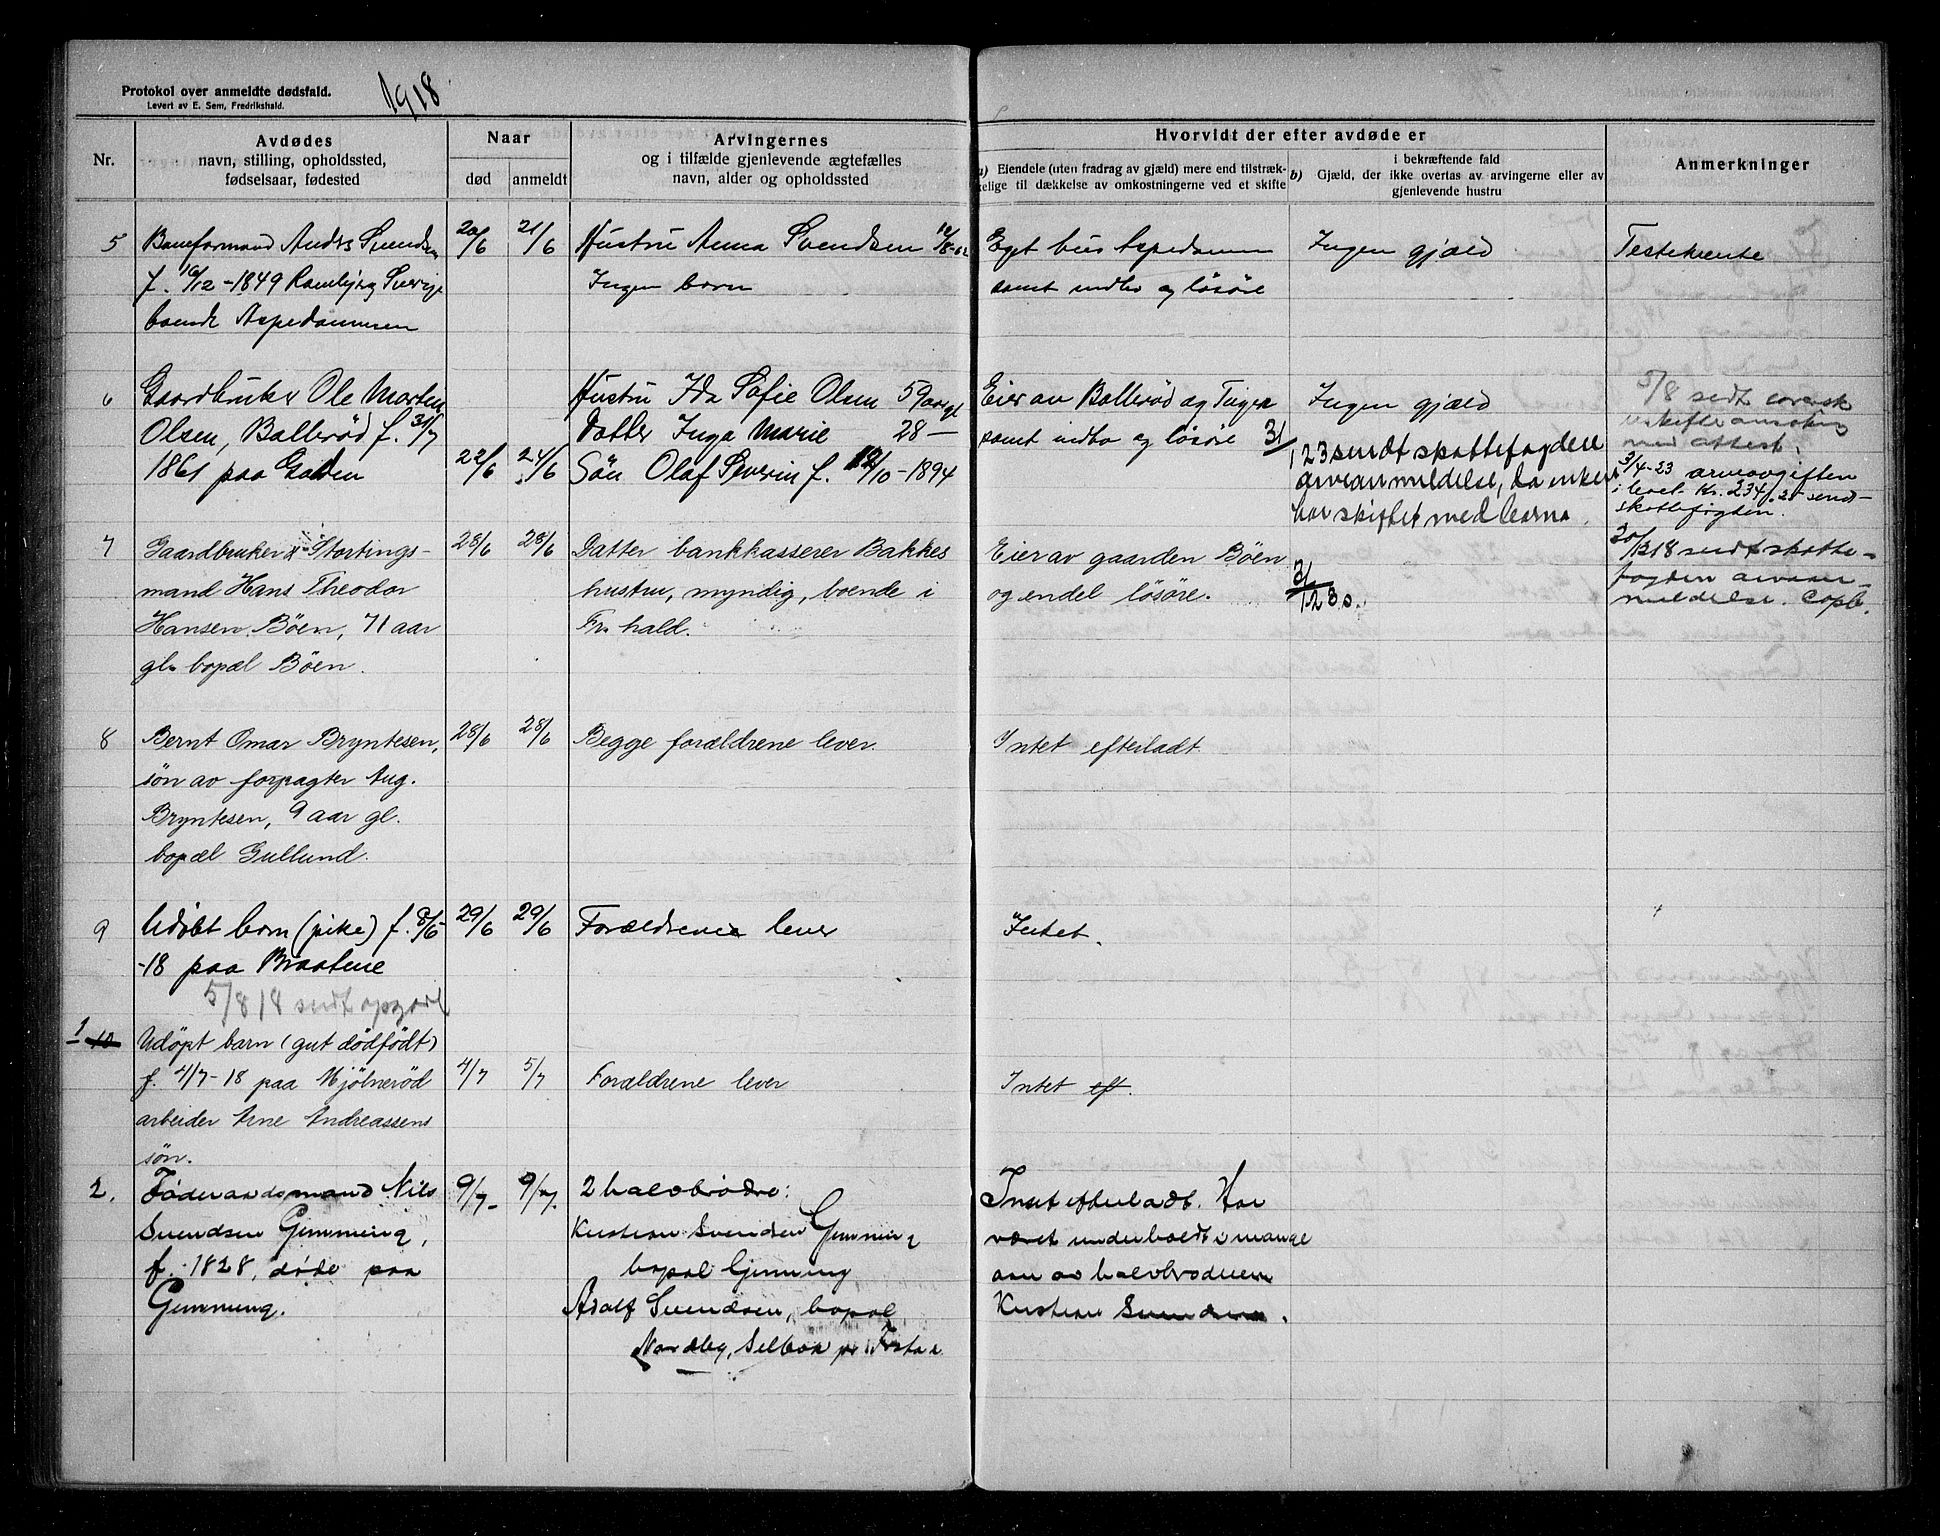 Protokol over anmeldte dødsfald.
Levert av E. Sem, Fredrikshald.
1918
Nr.
Avdødes
navn, stilling, opholdssted,
fødselsaar, fødested
Naar
død
anmeldt
Arvingernes
og i tilfælde gjenlevende ægtefælles
navn, alder og opholdssted
Hvorvidt der efter avdøde er
a) Eiendele (uten fradrag av gjæld) mere end tilstræk-
kelige til dækkelse av omkostningerne ved et skifte
i bekræftende fald
b) Gjæld, der ikke overtas av arvingerne eller av
gjenlevende hustru
Anmerkninger
5
Baneformand Anders Svendsen
f. 10/12-1849 Sverige
boende Aspedammen
20/6
21/6
Hustru Anna Svendsen
Ingen barn
Eget hus Aspedammen
samt indbo og løsøre
Ingen gjæld
6
Gaardbruker Ole Morten
Olsen, Ballerød f. 31/7
1861 paa
22/6
24/6
Hustru Ida Sofie Olsen 50 aar gl
Datter Inga Marie 28 —
Søn Olaf Severin f. 12/10-1894
Eier av Ballerød og
samt indbo og løsøre
Ingen gjæld
3/1 23 sendt skattefogden
arveanmeldelse, da enken
har skiftet med barna.
5/8 sendt
med attest.
3/4-23 arveavgiften
Kr. 234.25 send-
skattefogden.
7
Gaardbruker & Stortings-
mand Hans Theodor
Hansen Bøen, 71 aar
gl. bopæl Bøen.
28/6
28/6
Datter bankkasserer Bakkes
hustru, myndig, boende i
Fr.hald.
Eier av gaarden Bøen
og endel løsøre.
30/12 18 sendt skatte-
fogden arvean-
meldelse.
8
Bernt Omar Bryntesen,
søn av forpagter Aug.
Bryntesen, 9 aar gl.
bopæl Gullund.
28/6
28/6
Begge forældrene lever.
Intet efterladt
9
Udøbt barn (pike) f. 8/5
-18 paa Braatene
29/6
29/6
Forældrene lever
Intet.
5/8 18 sendt opgave
1 10
Udøpt barn (gut dödfödt)
f. 4/7-18 paa Mjölneröd
arbeider Arne Andreassens
søn.
4/7
5/7
Forældrene lever
Intet ef.
2.
Föderaadsmand Nils
Svendsen Gimming,
f. 1828, döde paa
Gimming.
9/7
9/7.
2 halvbrödre:
Kristian Svendsen Gimming
bopæl Gimming
Adolf Svendsen, bopæl
Nordby, Selbak pr
Intet efterladt. Har
været underholdt i mange
aar av halvbroderen
Kristian Svendsen.